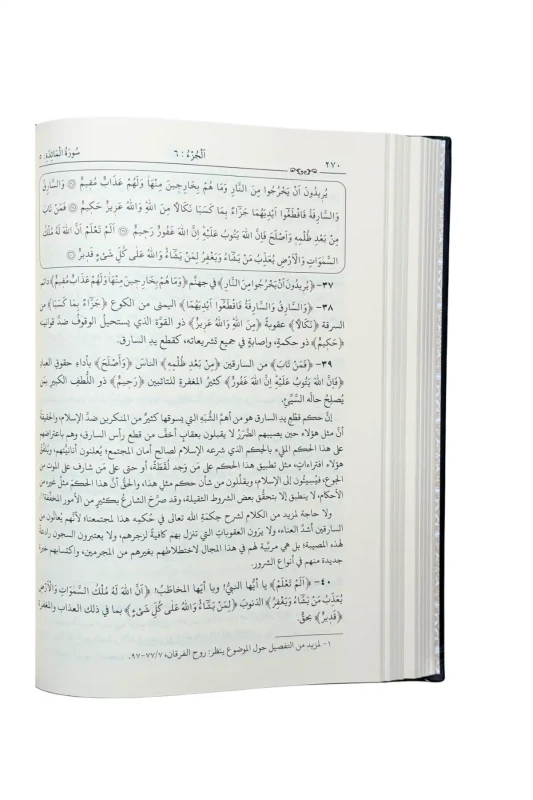 ٢٧٠
اَلْجُزْءُ : ٦
سُورَةُ الْمَائِدَةِ : ٥
يُرِيدُونَ اَنْ يَخْرُجُوا مِنَ النَّارِ وَمَا هُمْ بِخَارِجِينَ مِنْهَا وَلَهُمْ عَذَابٌ مُقِيمٌ ۝ وَالسَّارِقُ
وَالسَّارِقَةُ فَاقْطَعُوا اَيْدِيَهُمَا جَزَاءً بِمَا كَسَبَا نَكَالًا مِنَ اللّٰهِ وَاللّٰهُ عَزِيزٌ حَكِيمٌ ۝ فَمَنْ تَابَ
مِنْ بَعْدِ ظُلْمِهِ وَاَصْلَحَ فَاِنَّ اللّٰهَ يَتُوبُ عَلَيْهِ اِنَّ اللّٰهَ غَفُورٌ رَحِيمٌ ۝ اَلَمْ تَعْلَمْ اَنَّ اللّٰهَ لَهُ مُلْكُ
السَّمٰوَاتِ وَالْاَرْضِ يُعَذِّبُ مَنْ يَشَاءُ وَيَغْفِرُ لِمَنْ يَشَاءُ وَاللّٰهُ عَلٰى كُلِّ شَيْءٍ قَدِيرٌ ۝
٣٧- ﴿يُرِيدُونَ اَنْ يَخْرُجُوا مِنَ النَّارِ﴾ في جهنّم ﴿وَمَا هُمْ بِخَارِجِينَ مِنْهَا وَلَهُمْ عَذَابٌ مُقِيمٌ﴾ دائم
٣٨- ﴿وَالسَّارِقُ وَالسَّارِقَةُ فَاقْطَعُوا اَيْدِيَهُمَا﴾ اليمنى من الكوع ﴿جَزَاءً بِمَا كَسَبَا﴾ من
السرقة ﴿نَكَالًا﴾ عقوبةً ﴿مِنَ اللّٰهِ وَاللّٰهُ عَزِيزٌ﴾ ذو القوّة الذي يستحيلُ الوقوفُ ضدَّ قوانينه
﴿حَكِيمٌ﴾ ذو حكمةٍ، وإصابةٍ في جميع تشريعاته، كقطع يد السارق.
٣٩- ﴿فَمَنْ تَابَ﴾ من السارقين ﴿مِنْ بَعْدِ ظُلْمِهِ﴾ الناسَ ﴿وَاَصْلَحَ﴾ بأداءِ حقوقِ العباد
﴿فَاِنَّ اللّٰهَ يَتُوبُ عَلَيْهِ اِنَّ اللّٰهَ غَفُورٌ﴾ كثيرُ المغفرة للتائبين ﴿رَحِيمٌ﴾ ذو اللُّطفِ الكبيرِ بمَن
يُصلِحُ حالَه السَّيِّئَ.
إنَّ حكم قطعِ يدِ السارق هو من أهمِّ الشُّبَهِ التي يسوقها كثيرٌ من المنكرين ضدَّ الإسلام، والحقيقةُ
أنَّ مثل هؤلاء حين يصيبهم الضّرَرُ لا يقبلون بعقابٍ أخفَّ من قطع رأس السارق، وهم باعتراضهم
على هذا الحكم المليء بالحِكم الذي شرعه الإسلام لصالح أمان المجتمع؛ يُعلنون أنانيَّتَهم، ويَتَّفِقُ
هؤلاء افتراءاتٍ؛ مثل تطبيق هذا الحكم على مَن وَجد لُقَطَةً، أو حتى على مَن شارف على الموت من
الجوع، فيُسيئون إلى الإسلام، ويقلّلون من شأن حكم مثل هذا، والحقُّ أنَّ هذا الحكمَ مثلُ غيره من
الأحكام، لا ينطبق إلا بتحقّق بعض الشروط الثقيلة، وقد صرَّح الشارعُ بكثيرٍ من الأمور المخفّفة.
ولا حاجة لمزيد من الكلام لشرح حكمةِ الله تعالى في حُكمِه هذا لمجتمعنا؛ لأنَّهم يعانون من
السارقين أشدَّ العناء، ولا يرَون العقوباتِ التي تنزل بهم كافيةً لزجرهم، ولا يعتبرون السجون رادعةً
لهذه المصيبة؛ بل هي مربِّيةً لهم في هذا المجال لاختلاطهم بغيرهم من المجرمين، واكتسابهم خبرةً
جديدة منهم في أنواع الشرور.
٤٠- ﴿اَلَمْ تَعْلَمْ﴾ يا أيُّها النبيُّ! ويا أيُّها المخاطَبُ! ﴿اَنَّ اللّٰهَ لَهُ مُلْكُ السَّمٰوَاتِ وَالْاَرْضِ
يُعَذِّبُ مَنْ يَشَاءُ وَيَغْفِرُ﴾ الذنوبَ ﴿لِمَنْ يَشَاءُ وَاللّٰهُ عَلٰى كُلِّ شَيْءٍ﴾ بما في ذلك العذاب والمغفرة
﴿قَدِيرٌ﴾ بحقٍّ.
١- لمزيد من التفصيل حول الموضوع ينظر: روح الفرقان، ٧٧/٧-٩٧.